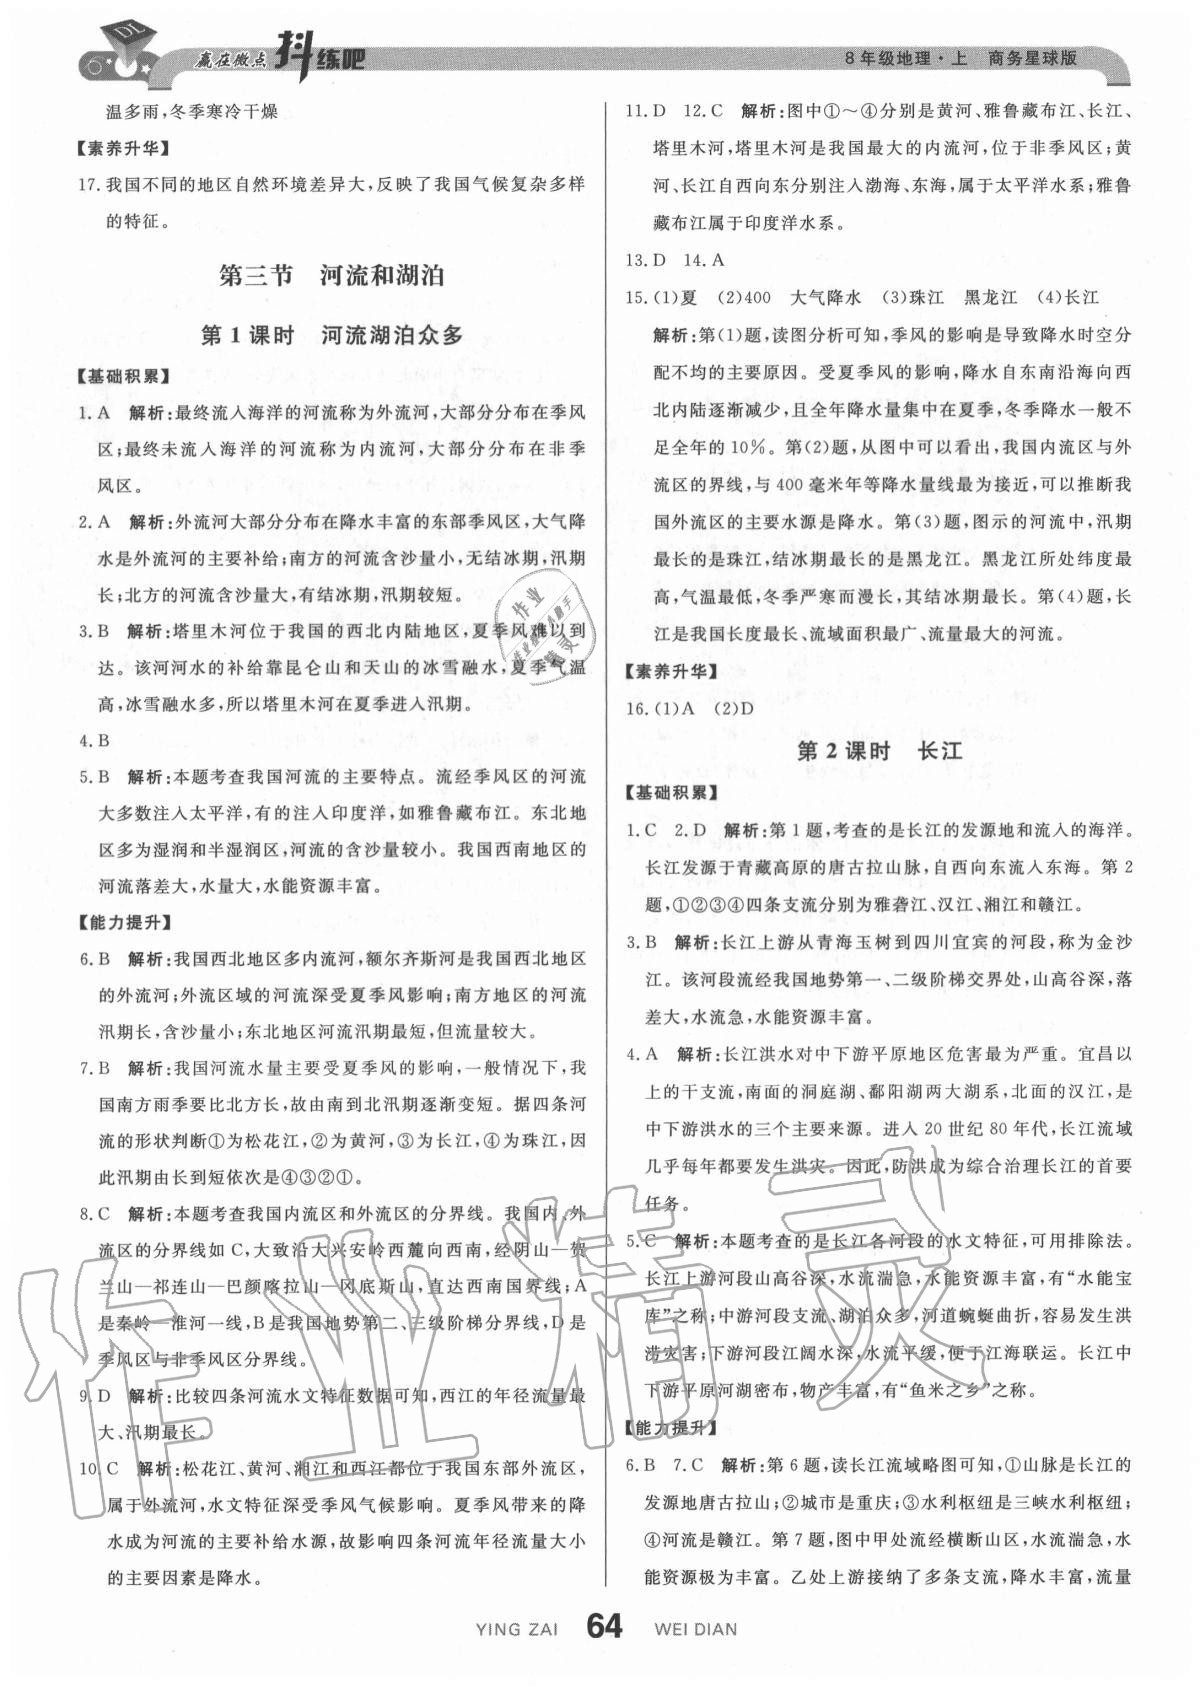 赢在微点 抖练吧
8年级地理·上 商务星球版
温多雨,冬季寒冷干燥
【素养升华】
17.我国不同的地区自然环境差异大,反映了我国气候复杂多样
的特征。
第三节 河流和湖泊
第1课时 河流湖泊众多
【基础积累】
1.A 解析:最终流入海洋的河流称为外流河,大部分分布在季风
区;最终未流入海洋的河流称为内流河,大部分分布在非季
风区。
2.A 解析:外流河大部分分布在降水丰富的东部季风区,大气降
水是外流河的主要补给;南方的河流含沙量小,无结冰期,汛期
长;北方的河流含沙量大,有结冰期,汛期较短。
3.B 解析:塔里木河位于我国的西北内陆地区,夏季风难以到
达。该河河水的补给靠昆仑山和天山的冰雪融水,夏季气温
高,冰雪融水多,所以塔里木河在夏季进入汛期。
4.B
5.B 解析:本题考查我国河流的主要特点。流经季风区的河流
大多数注入太平洋,有的注入印度洋,如雅鲁藏布江。东北地
区多为湿润和半湿润区,河流的含沙量较小。我国西南地区的
河流落差大,水量大,水能资源丰富。
【能力提升】
6.B 解析:我国西北地区多内流河,额尔齐斯河是我国西北地区
的外流河;外流区域的河流深受夏季风影响;南方地区的河流
汛期长,含沙量小;东北地区河流汛期最短,但流量较大。
7.B 解析:我国河流水量主要受夏季风的影响,一般情况下,我
国南方雨季要比北方长,故由南到北汛期逐渐变短。据四条河
流的形状判断①为松花江,②为黄河,③为长江,④为珠江,因
此汛期由长到短依次是④③②①。
8.C 解析:本题考查我国内流区和外流区的分界线。我国内、外
流区的分界线如C,大致沿大兴安岭西麓向西南,经阴山—贺
兰山—祁连山—巴颜喀拉山—冈底斯山,直达西南国界线;A
是秦岭—淮河一线,B是我国地势第二、三级阶梯分界线,D是
季风区与非季风区分界线。
9.D 解析:比较四条河流水文特征数据可知,西江的年径流量最
大、汛期最长。
10.C 解析:松花江、黄河、湘江和西江都位于我国东部外流区,
属于外流河,水文特征深受季风气候影响。夏季风带来的降
水成为河流的主要补给水源,故影响四条河流年径流量大小
的主要因素是降水。
11.D 12.C 解析:图中①～④分别是黄河、雅鲁藏布江、长江、
塔里木河,塔里木河是我国最大的内流河,位于非季风区;黄
河、长江自西向东分别注入渤海、东海,属于太平洋水系;雅鲁
藏布江属于印度洋水系。
13.D 14.A
15.(1)夏 (2)400 大气降水 (3)珠江 黑龙江 (4)长江
解析:第(1)题,读图分析可知,季风的影响是导致降水时空分
配不均的主要原因。受夏季风的影响,降水自东南沿海向西
北内陆逐渐减少,且全年降水量集中在夏季,冬季降水一般不
足全年的10%。第(2)题,从图中可以看出,我国内流区与外
流区的界线,与400毫米年等降水量线最为接近,可以推断我
国外流区的主要水源是降水。第(3)题,图示的河流中,汛期
最长的是珠江,结冰期最长的是黑龙江。黑龙江所处纬度最
高,气温最低,冬季严寒而漫长,其结冰期最长。第(4)题,长
江是我国长度最长、流域面积最广、流量最大的河流。
【素养升华】
16.(1)A (2)D
第2课时 长江
【基础积累】
1.C 2.D 解析:第1题,考查的是长江的发源地和流入的海洋。
长江发源于青藏高原的唐古拉山脉,自西向东流入东海。第2
题,①②③④四条支流分别为雅砻江、汉江、湘江和赣江。
3.B 解析:长江上游从青海玉树到四川宜宾的河段,称为金沙
江。该河段流经我国地势第一、二级阶梯交界处,山高谷深,落
差大,水流急,水能资源丰富。
4.A 解析:长江洪水对中下游平原地区危害最为严重。宜昌以
上的干支流,南面的洞庭湖、鄱阳湖两大湖系,北面的汉江,是
中下游洪水的三个主要来源。进入20世纪80年代,长江流域
几乎每年都要发生洪灾。因此,防洪成为综合治理长江的首要
任务。
5.C 解析:本题考查的是长江各河段的水文特征,可用排除法。
长江上游河段山高谷深,水流湍急,水能资源丰富,有“水能宝
库”之称;中游河段支流、湖泊众多,河道蜿蜒曲折,容易发生洪
涝灾害;下游河段江阔水深,水流平缓,便于江海联运。长江中
下游平原河湖密布,物产丰富,有“鱼米之乡”之称。
【能力提升】
6.B 7.C 解析:第6题,读长江流域略图可知,①山脉是长江的
发源地唐古拉山;②城市是重庆;③水利枢纽是三峡水利枢纽;
④河流是赣江。第7题,图中甲处流经横断山区,水流湍急,水
能资源极为丰富。乙处上游接纳了多条支流,降水丰富,流量
YING ZAI 64 WEI DIAN
作业精灵